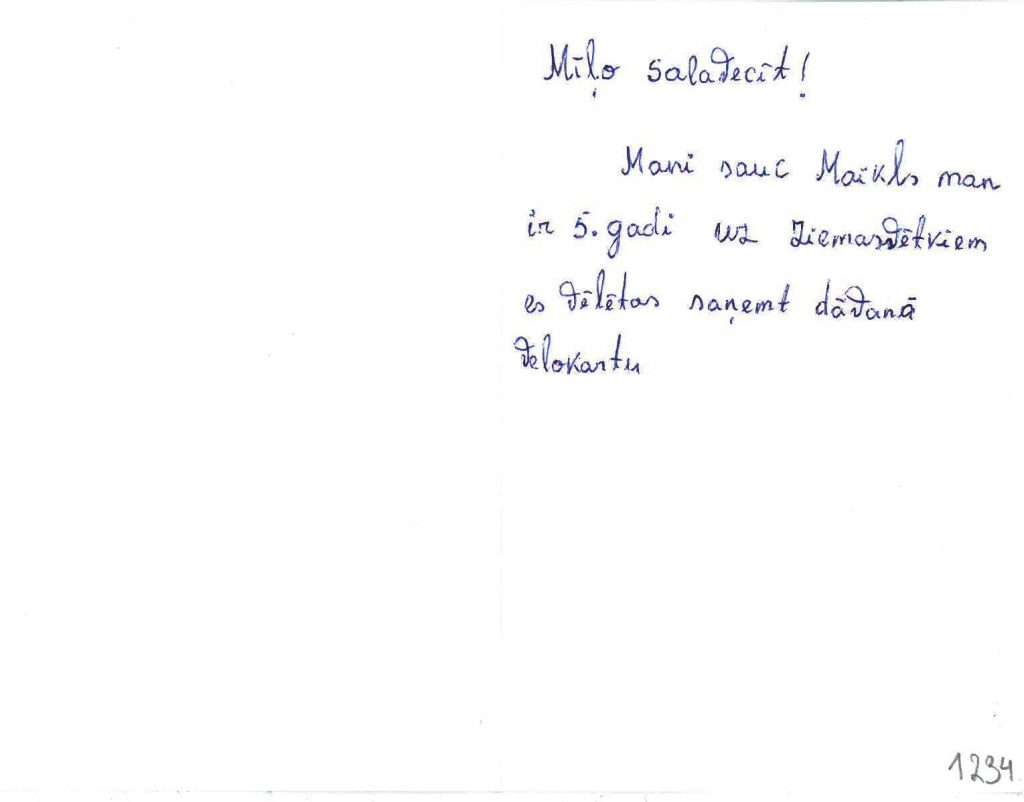 Mīļo salavecīt!
Mani sauc Maikls man
ir 5. gadi uz Ziemasvētkiem
es vēlētos saņemt dāvanā
velokartu
1234